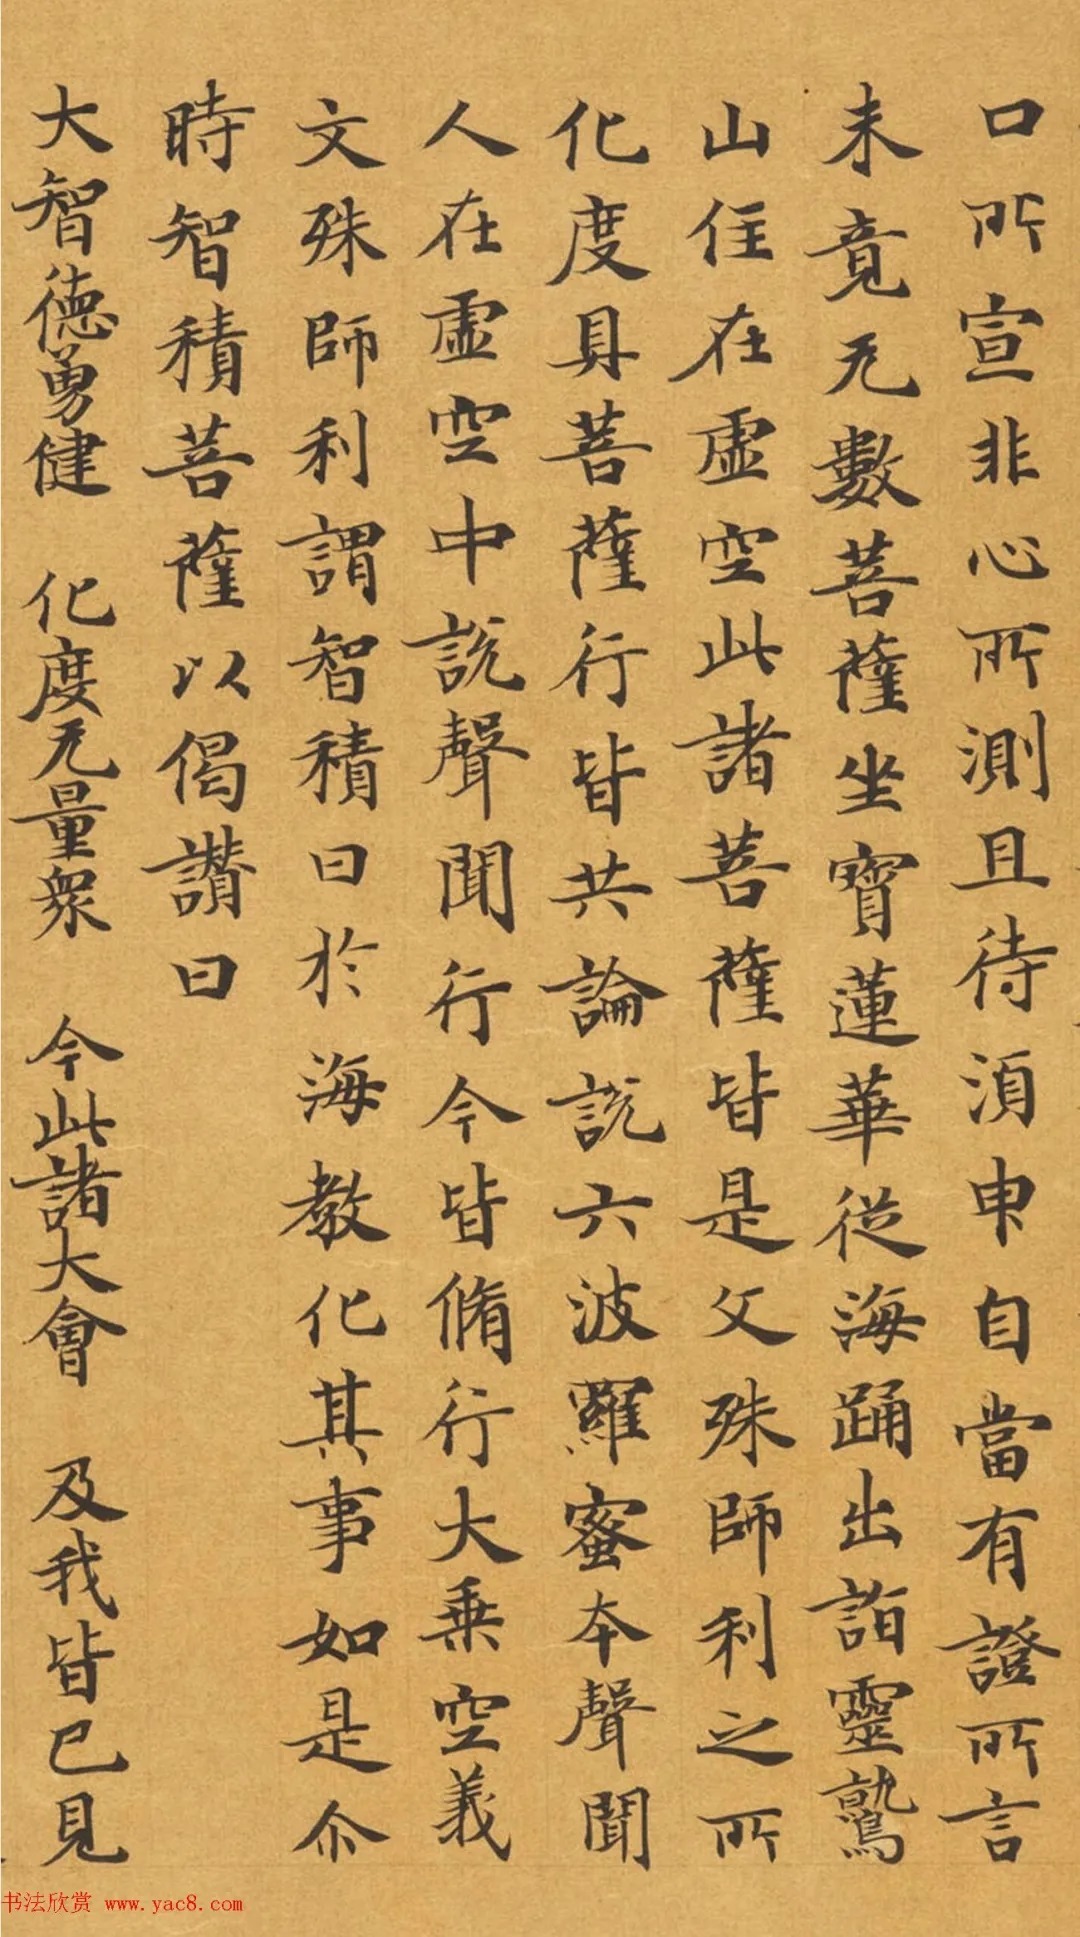 口所宣非心所測且待湏申自當有證所言
未竟无數菩薩坐寶蓮華從海踊出詣靈鷲
山住在虛空此諸菩薩皆是文殊師利之所
化度具菩薩行皆共論說六波羅蜜本聲聞
人在虛空中說聲聞行今皆脩行大乗空義
文殊師利謂智積曰於海教化其事如是尒
時智積菩薩以偈讚曰
大智德勇健 化度无量衆 今此諸大會 及我皆已見
书法欣赏 www.yac8.com